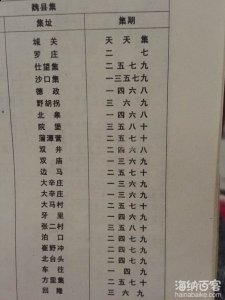 魏县集
集址 集期
城关 天天集
罗庄 二 七
仕望集 二五七九
沙口集 一三五七九
德政 一四六八
野胡拐 三六九
北皋 一四六八
院堡 三五八十
蒲潭营 二五七十
双井 二四六八
双庙 一三六九
边马 二五七十
大辛庄 一三六九
大辛庄 一三六九
大马村 二五七十
牙里 一四六九
张二村 三五八十
泊口 二四七九
崔野冲
北台头 二五七
车往 一四九
方里集 二五七十
回隆 三六九
海纳百客
hainabaike.com